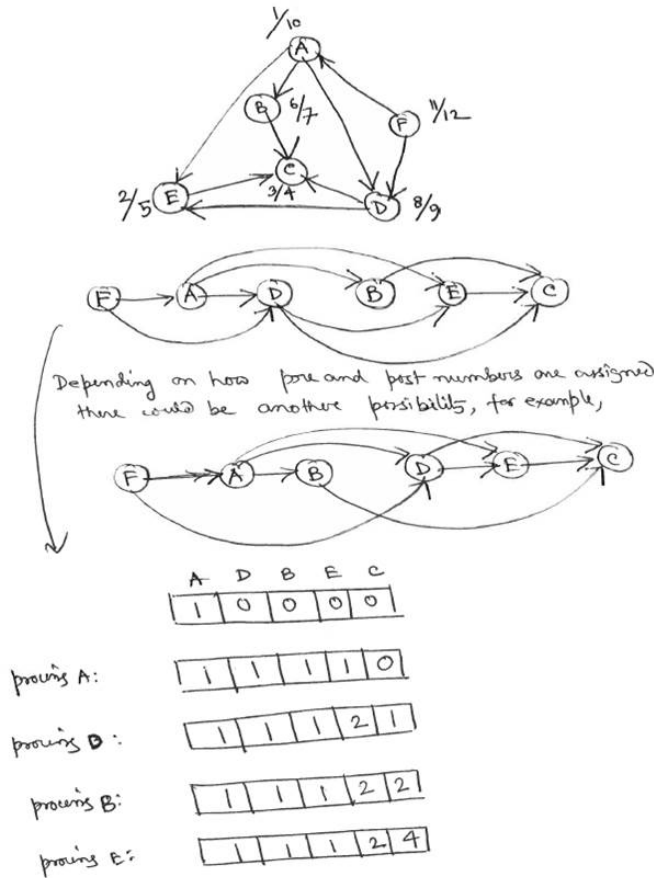 1/10
A
B 6/7
F 11/12
C
3/4
2/5 E
D 8/9
F A D B E C
Depending on how pre and post numbers are assigned
there could be another possibility, for example,
F A B D E C
A D B E C
1 0 0 0 0
process A: 1 1 1 1 0
process D: 1 1 1 2 1
process B: 1 1 1 2 2
process E: 1 1 1 2 4